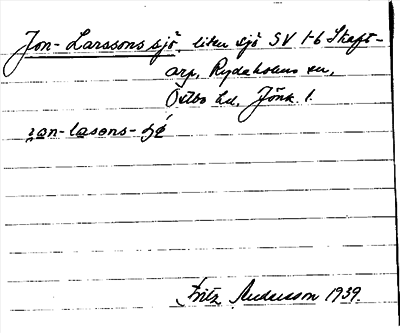 Jon-Larssons sjö. liten sjö SV 1-6 Skaft-
arp, Rydaholms sn,
Östbo hd, Jönk. l.
jon-lasons-sjö
Fritz Andersson 1939.